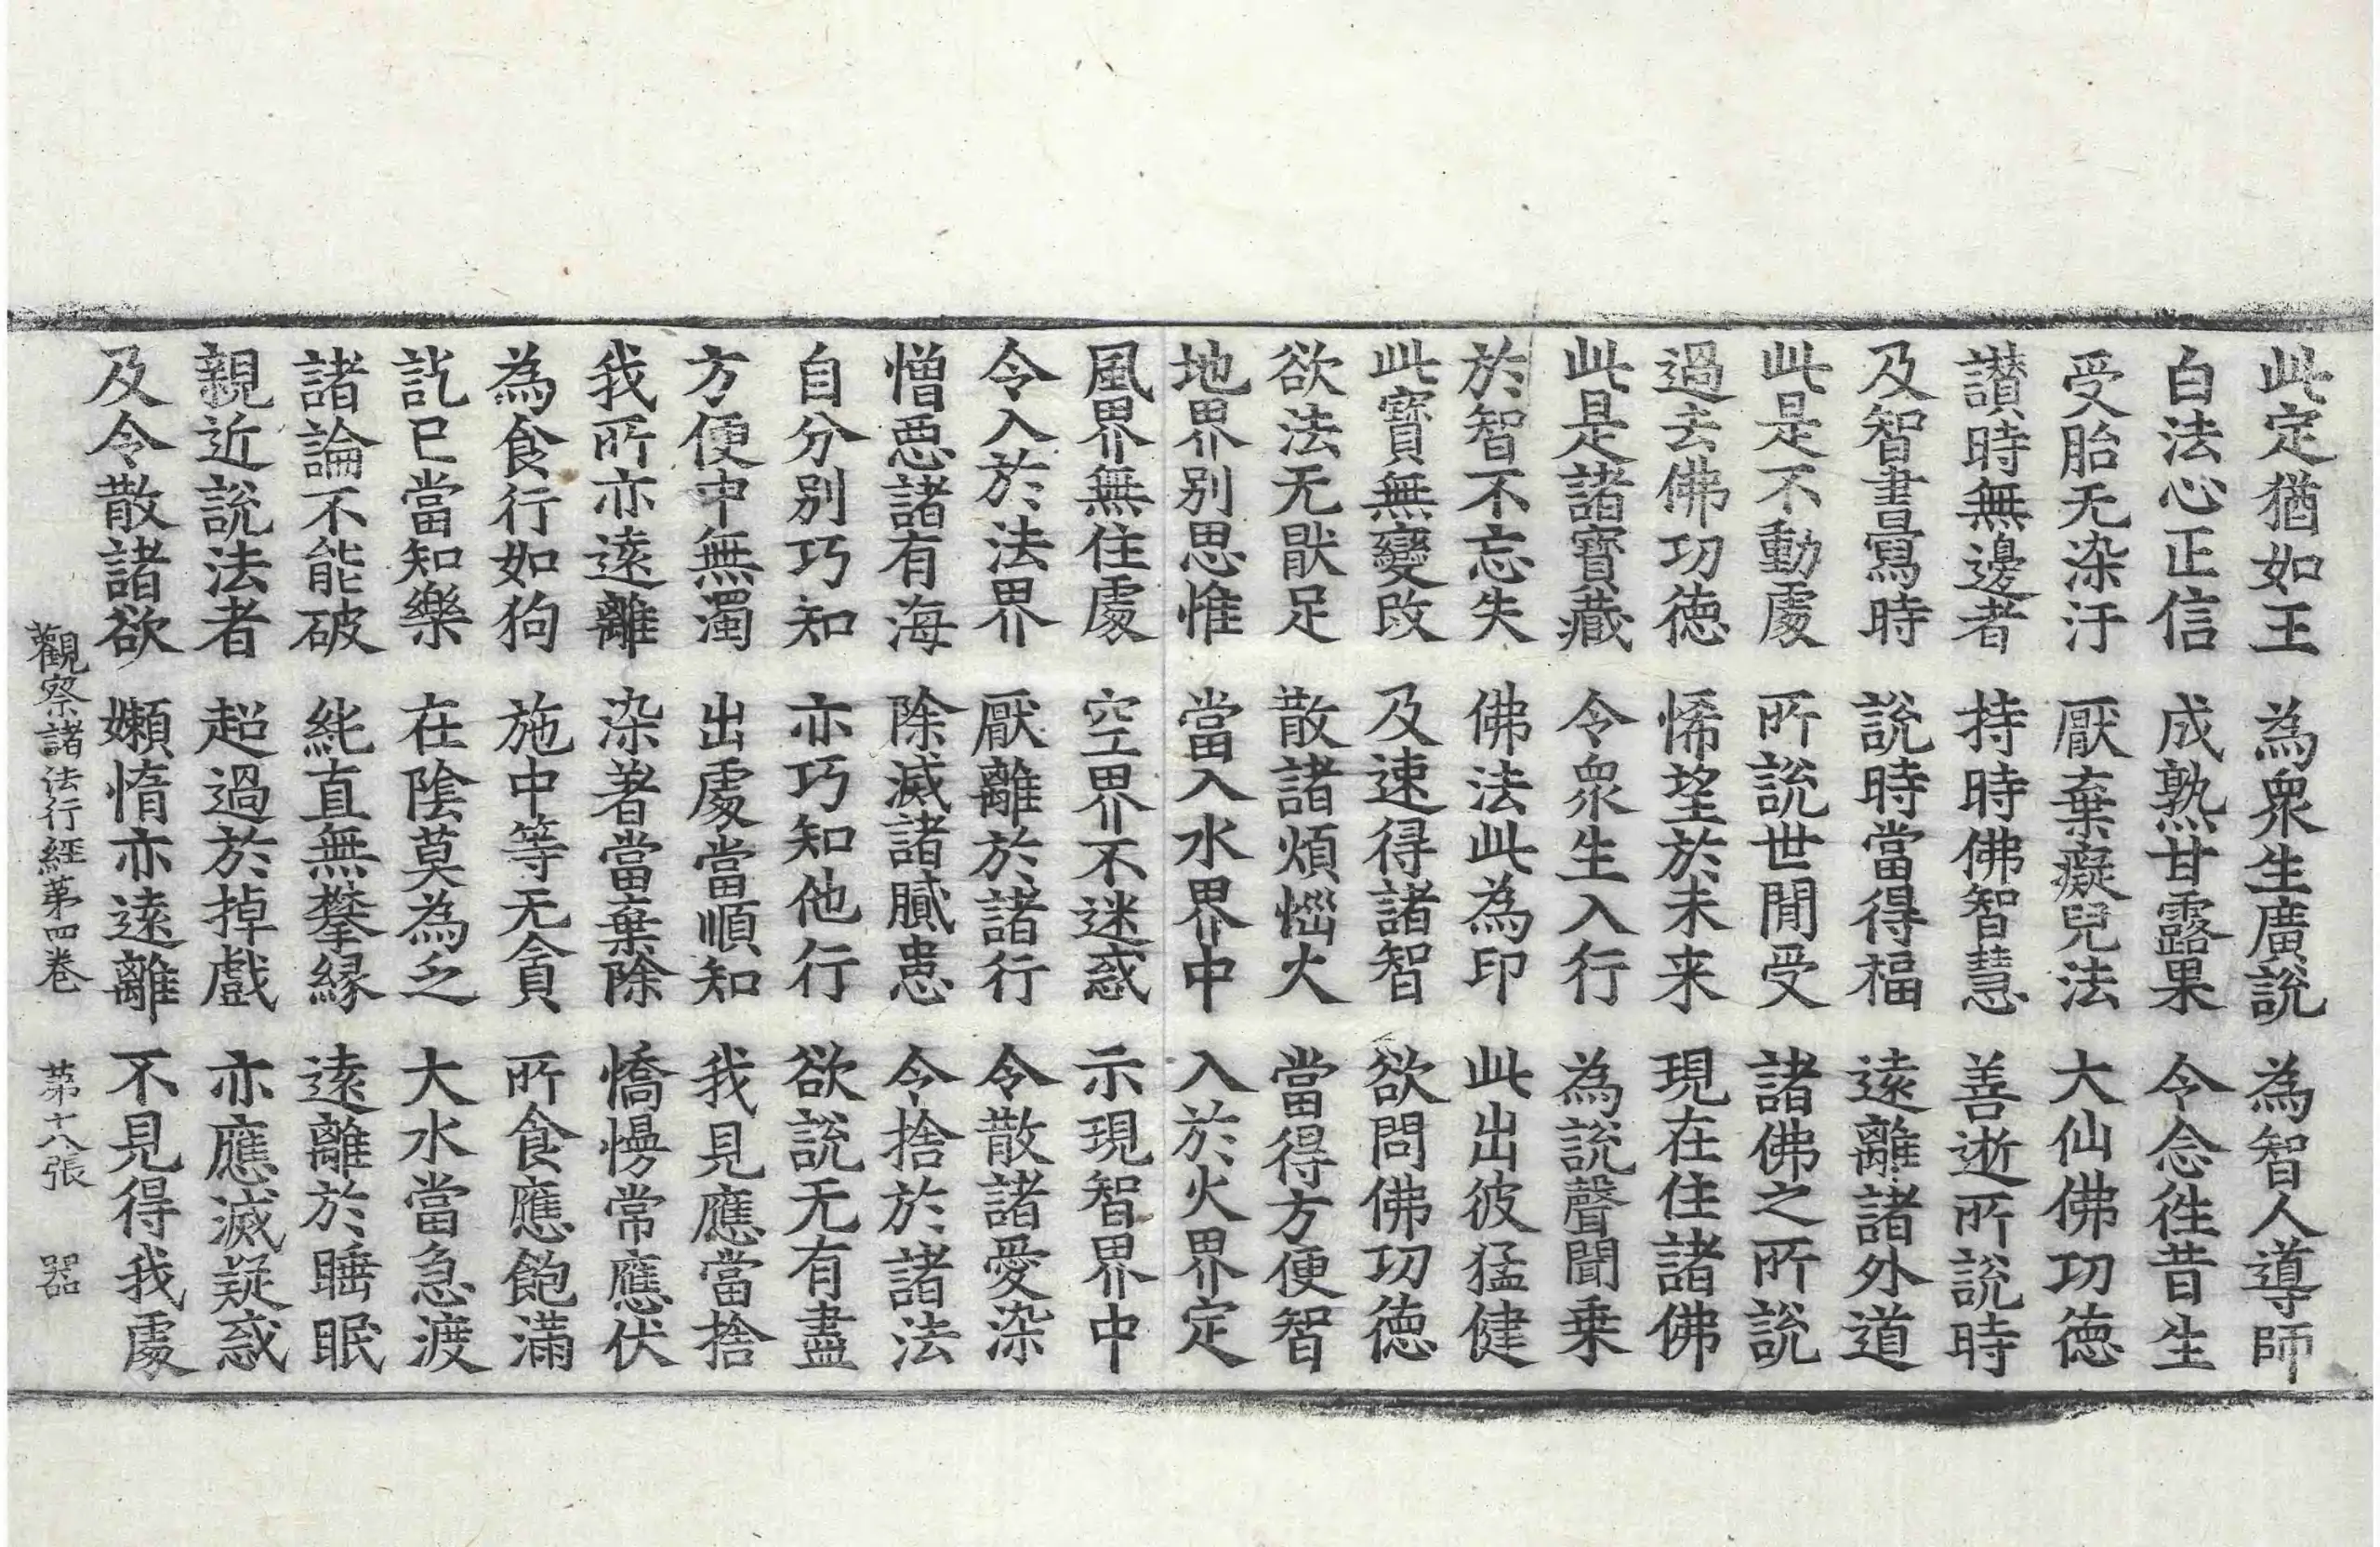 此定猶如王　為衆生廣說　為智人導師
白法心正信　成熟甘露果　令念徃昔生
受胎无染汙　厭棄癡兒法　大仙佛功徳
讃時無邊者　持時佛智慧　善逝所說時
及智書寫時　說時當得福　遠離諸外道
此是不動處　所說世間受　諸佛之所說
過去佛功徳　悕望於未来　現在住諸佛
此是諸寶藏　令衆生入行　為說聲聞乗
於智不忘失　佛法此為印　此出彼猛健
此寶無變改　及速得諸智　欲問佛功徳
欲法无猒足　散諸煩惱火　當得方便智
地界別思惟　當入水界中　入於火界定
風界無住處　空界不迷惑　示現智界中
令入於法界　厭離於諸行　令散諸愛染
憎惡諸有海　除滅諸膩患　令捨於諸法
自分別巧知　亦巧知他行　欲說无有盡
方便中無濁　出處當順知　我見應當捨
我所亦遠離　染著當棄除　憍慢常應伏
為食行如狗　施中等无貪　所食應飽滿
訖已當知樂　在陰莫為乏　大水當急渡
諸論不能破　純直無攀縁　遠離於睡眠
親近說法者　超過於掉戲　亦應滅疑惑
及令散諸欲　嬾惰亦遠離　不見得我處
觀察諸法行經第四巻　第十八張　器